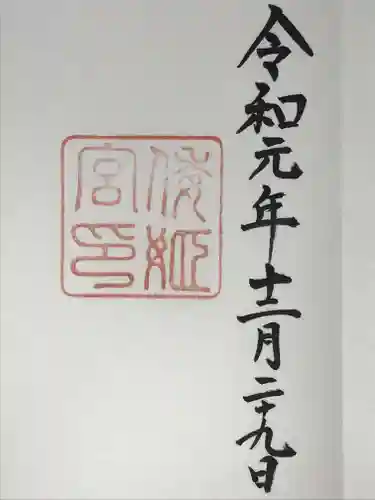 令和元年十二月二十九日
倭姫
宮印